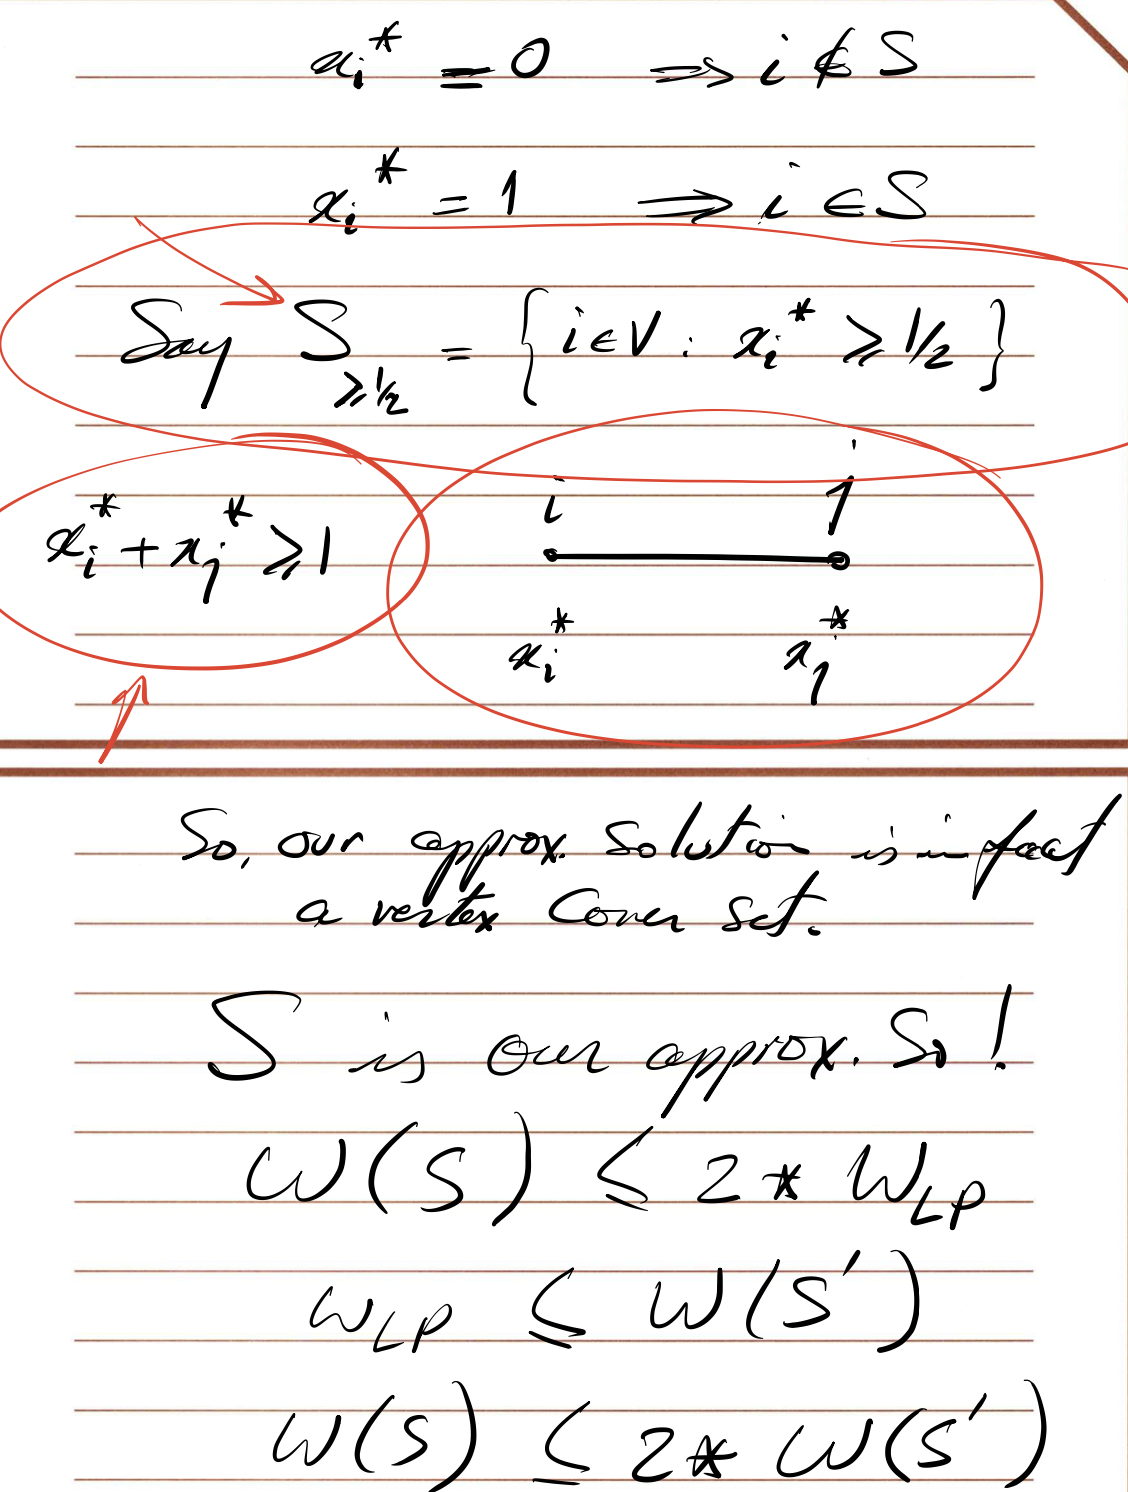 xᵢ* = 0 ⇒ i ∉ S
xᵢ* = 1 ⇒ i ∈ S
Say S≥1/2 = { i ∈ V : xᵢ* ≥ 1/2 }
i j
xᵢ* + xⱼ* ≥ 1
xᵢ* xⱼ*
So, our approx. solution is in fact
a vertex cover set.
S is our approx. So!
W(S) ≤ 2 * W_LP
W_LP ≤ W(S')
W(S) ≤ 2 * W(S')